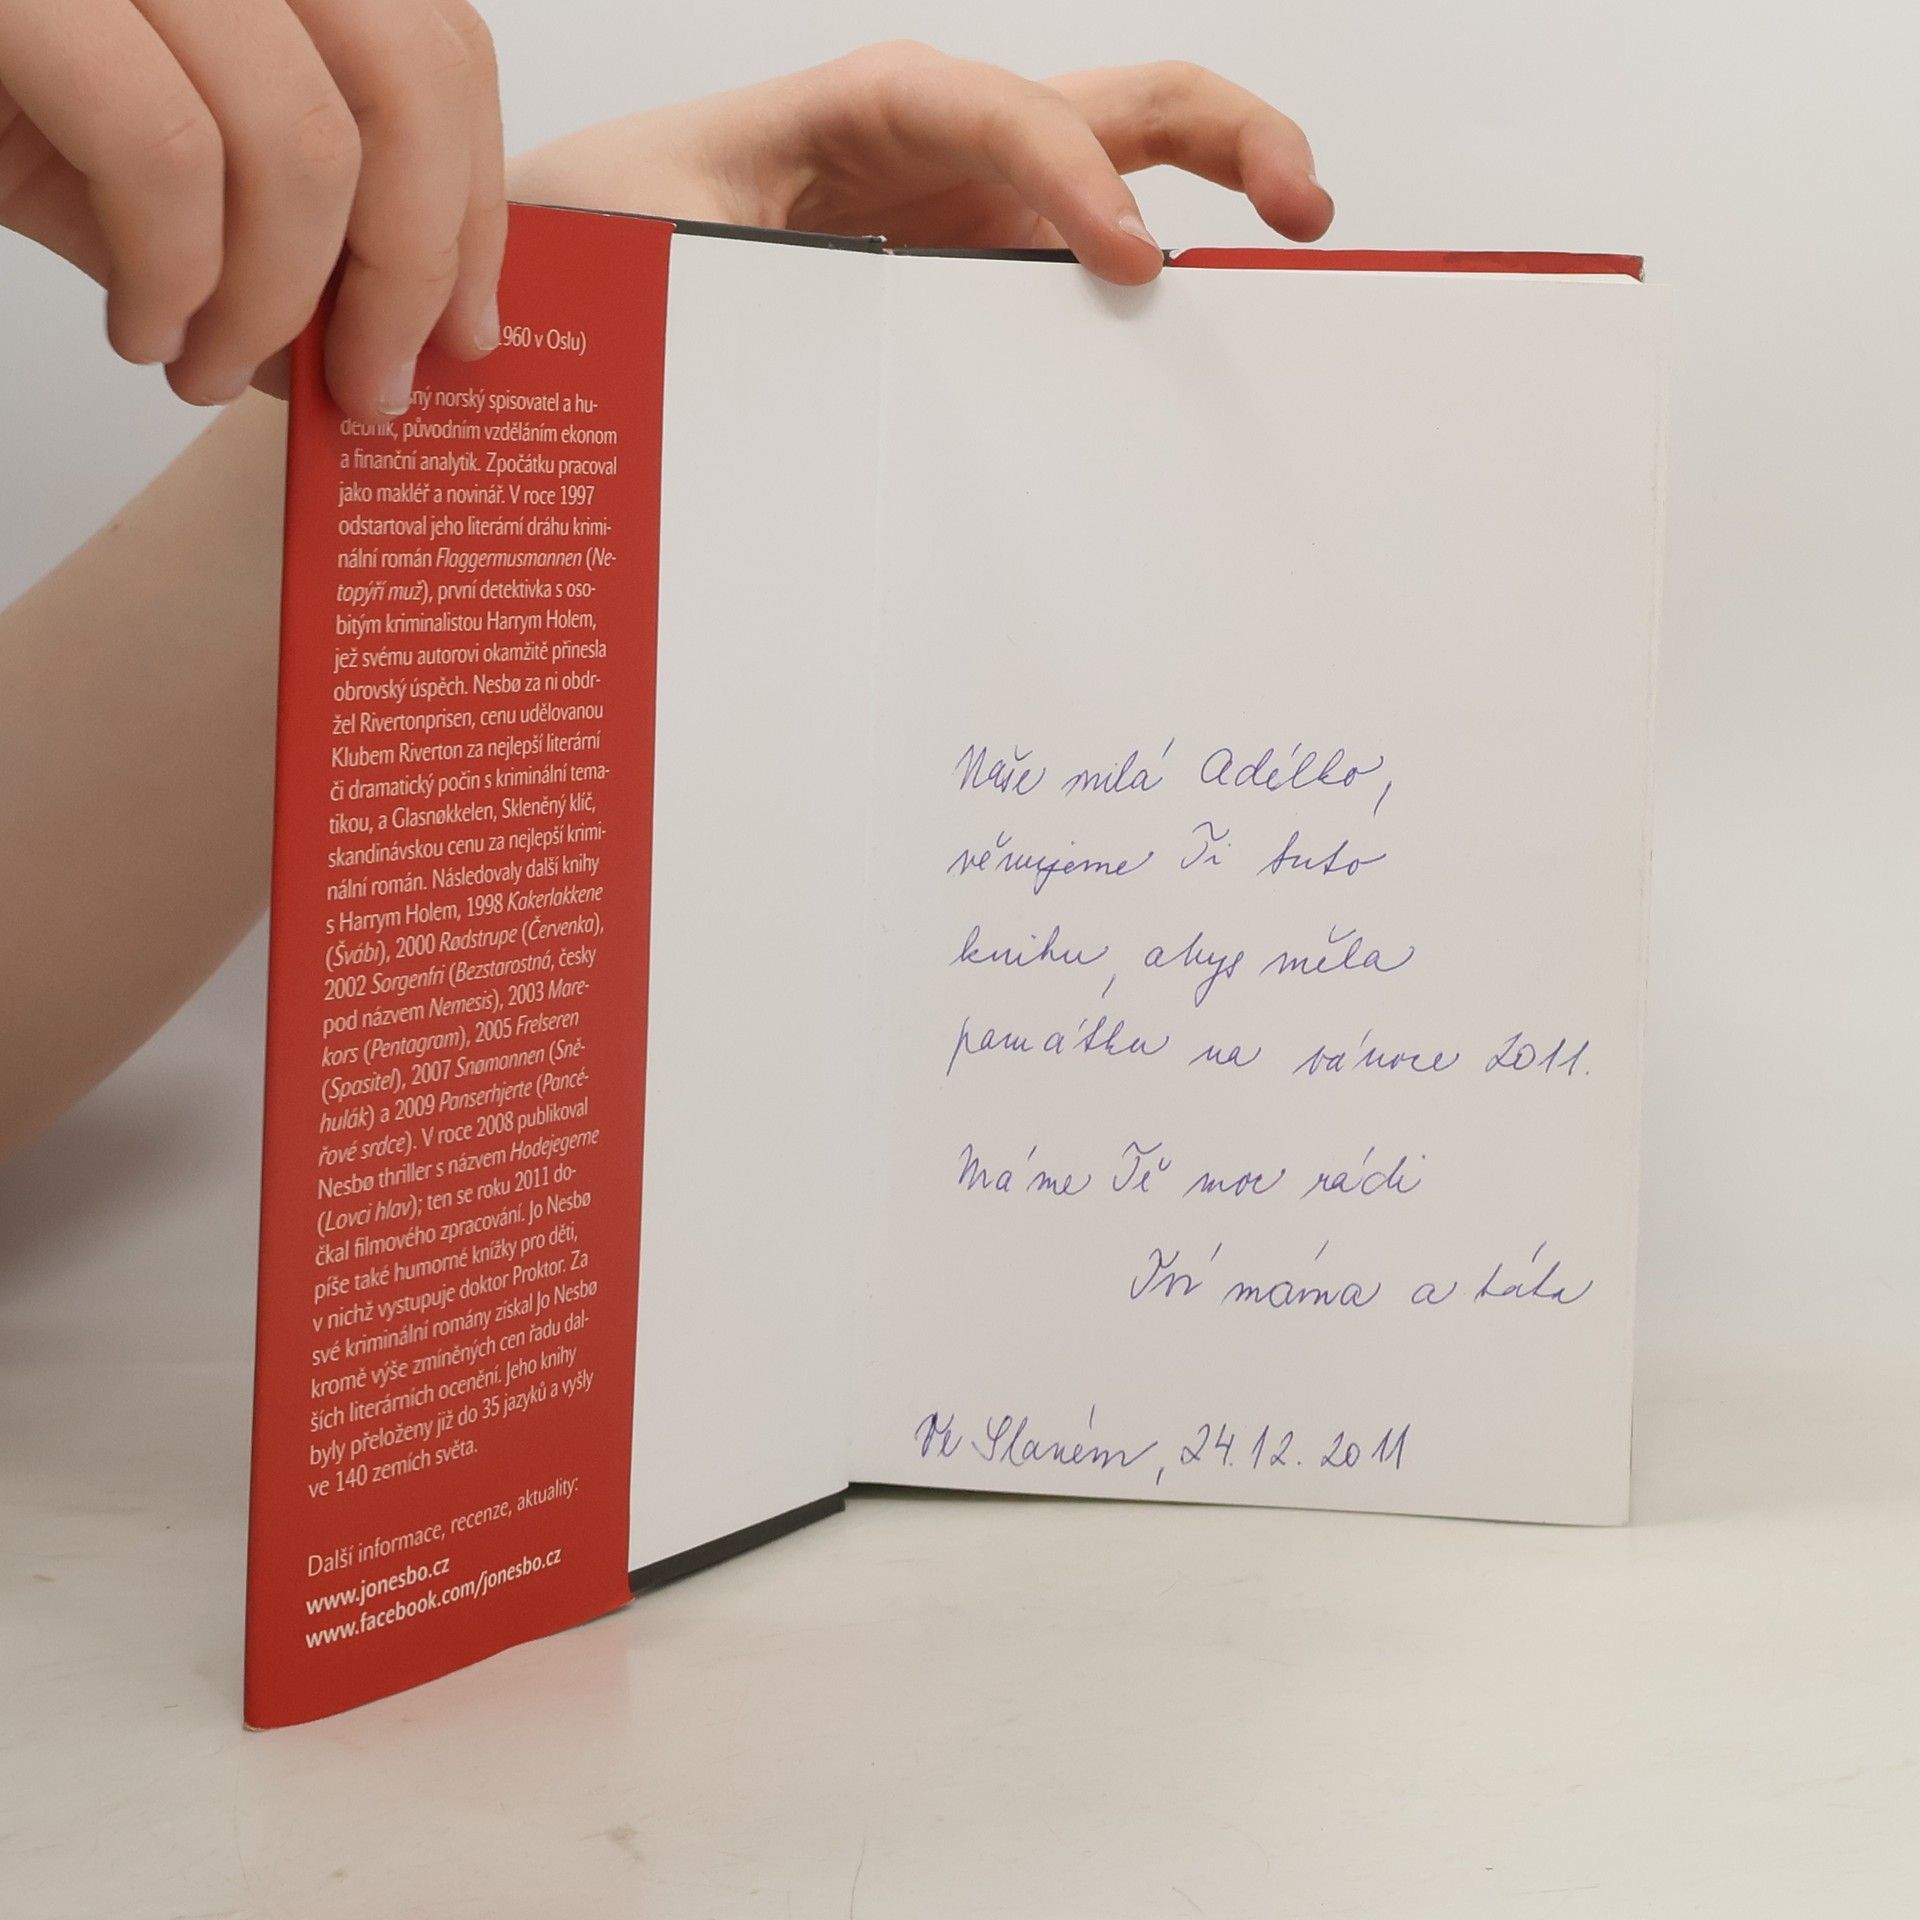 1960 v Oslu)
norský spisovatel a hu-
debník, původním vzděláním ekonom
a finanční analytik. Zpočátku pracoval
jako makléř a novinář. V roce 1997
odstartoval jeho literární dráhu krimi-
nální román Flaggermusmannen (Ne-
topýří muž), první detektivka s oso-
bitým kriminalistou Harrym Holem,
jež svému autorovi okamžitě přinesla
obrovský úspěch. Nesbø za ni obdr-
žel Rivertonprisen, cenu udělovanou
Klubem Riverton za nejlepší literární
či dramatický počin s kriminální tema-
tikou, a Glasnøkkelen, Skleněný klíč,
skandinávskou cenu za nejlepší krimi-
nální román. Následovaly další knihy
s Harrym Holem, 1998 Kakerlakkene
(Švábi), 2000 Rødstrupe (Červenka),
2002 Sorgenfri (Bezstarostná, česky
pod názvem Nemesis), 2003 Mare-
kors (Pentagram), 2005 Frelseren
(Spasitel), 2007 Snømannen (Sně-
hulák) a 2009 Panserhjerte (Pancé-
řové srdce). V roce 2008 publikoval
Nesbø thriller s názvem Hodejegerne
(Lovci hlav); ten se roku 2011 do-
čkal filmového zpracování. Jo Nesbø
píše také humorné knížky pro děti,
v nichž vystupuje doktor Proktor. Za
své kriminální romány získal Jo Nesbø
kromě výše zmíněných cen řadu dal-
ších literárních ocenění. Jeho knihy
byly přeloženy již do 35 jazyků a vyšly
ve 140 zemích světa.
Další informace, recenze, aktuality:
www.jonesbo.cz
www.facebook.com/jonesbo.cz
Naše milá Adélko,
věnujeme Ti tuto
knihu, abys měla
památku na vánoce 2011.
Máme Tě moc rádi
Tví máma a táta
Ve Slaném, 24.12.2011